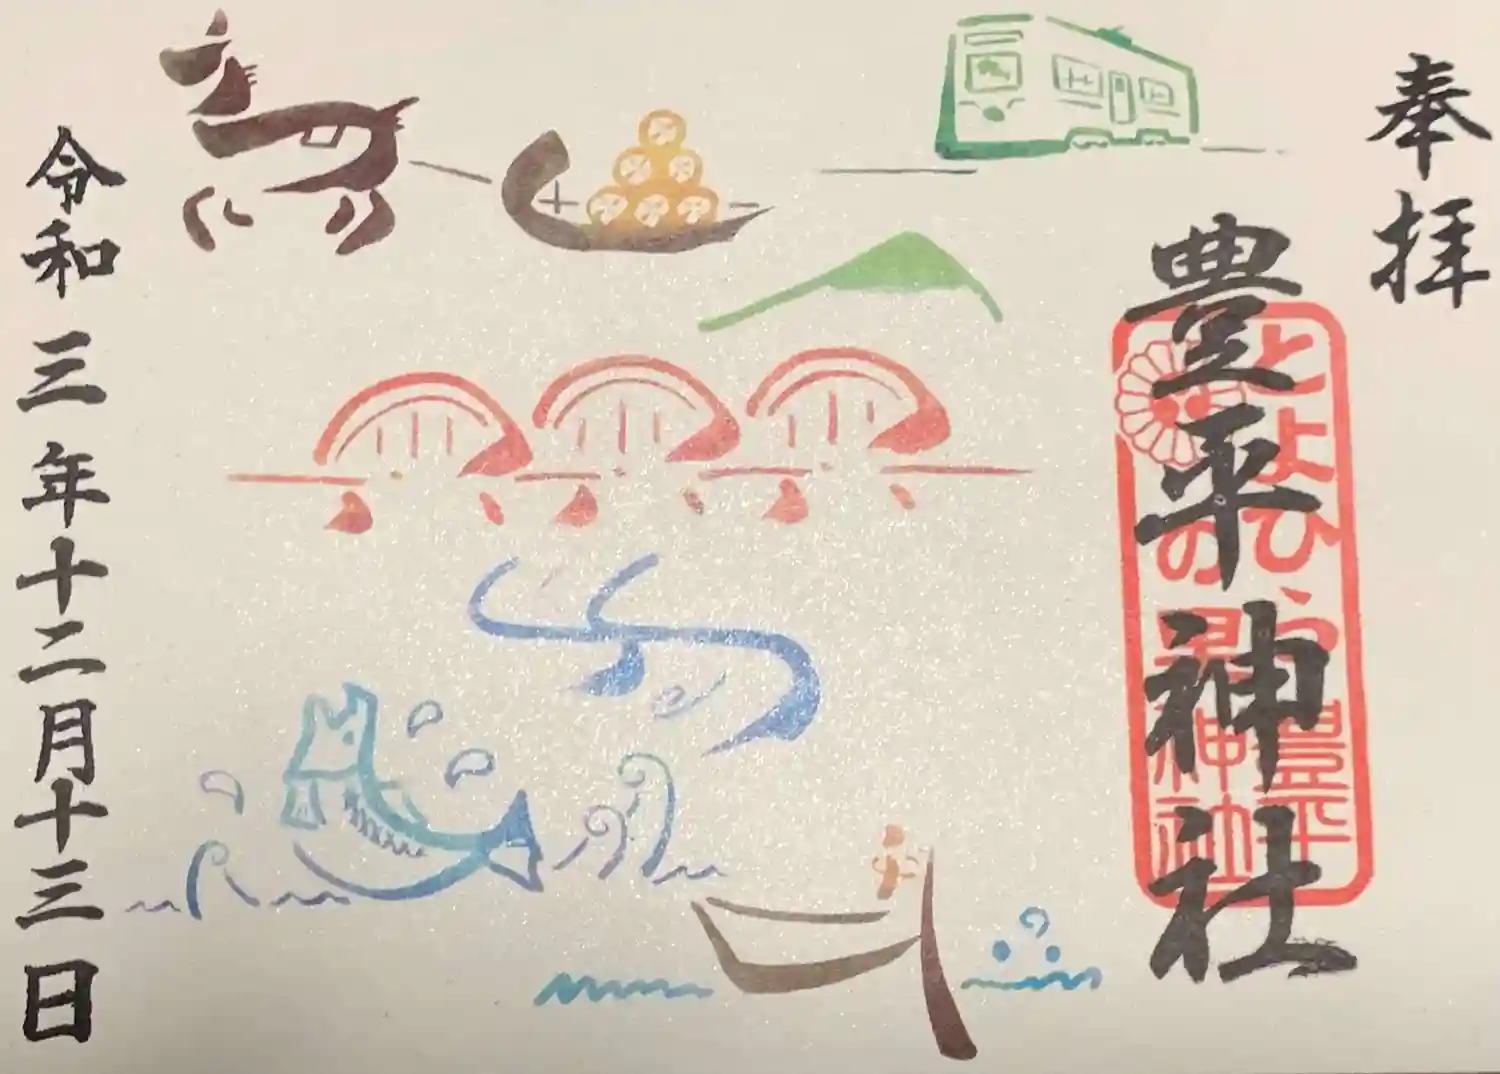 奉拝
豊平神社
とよひら
の
豊平
神社
令和三年十二月十三日